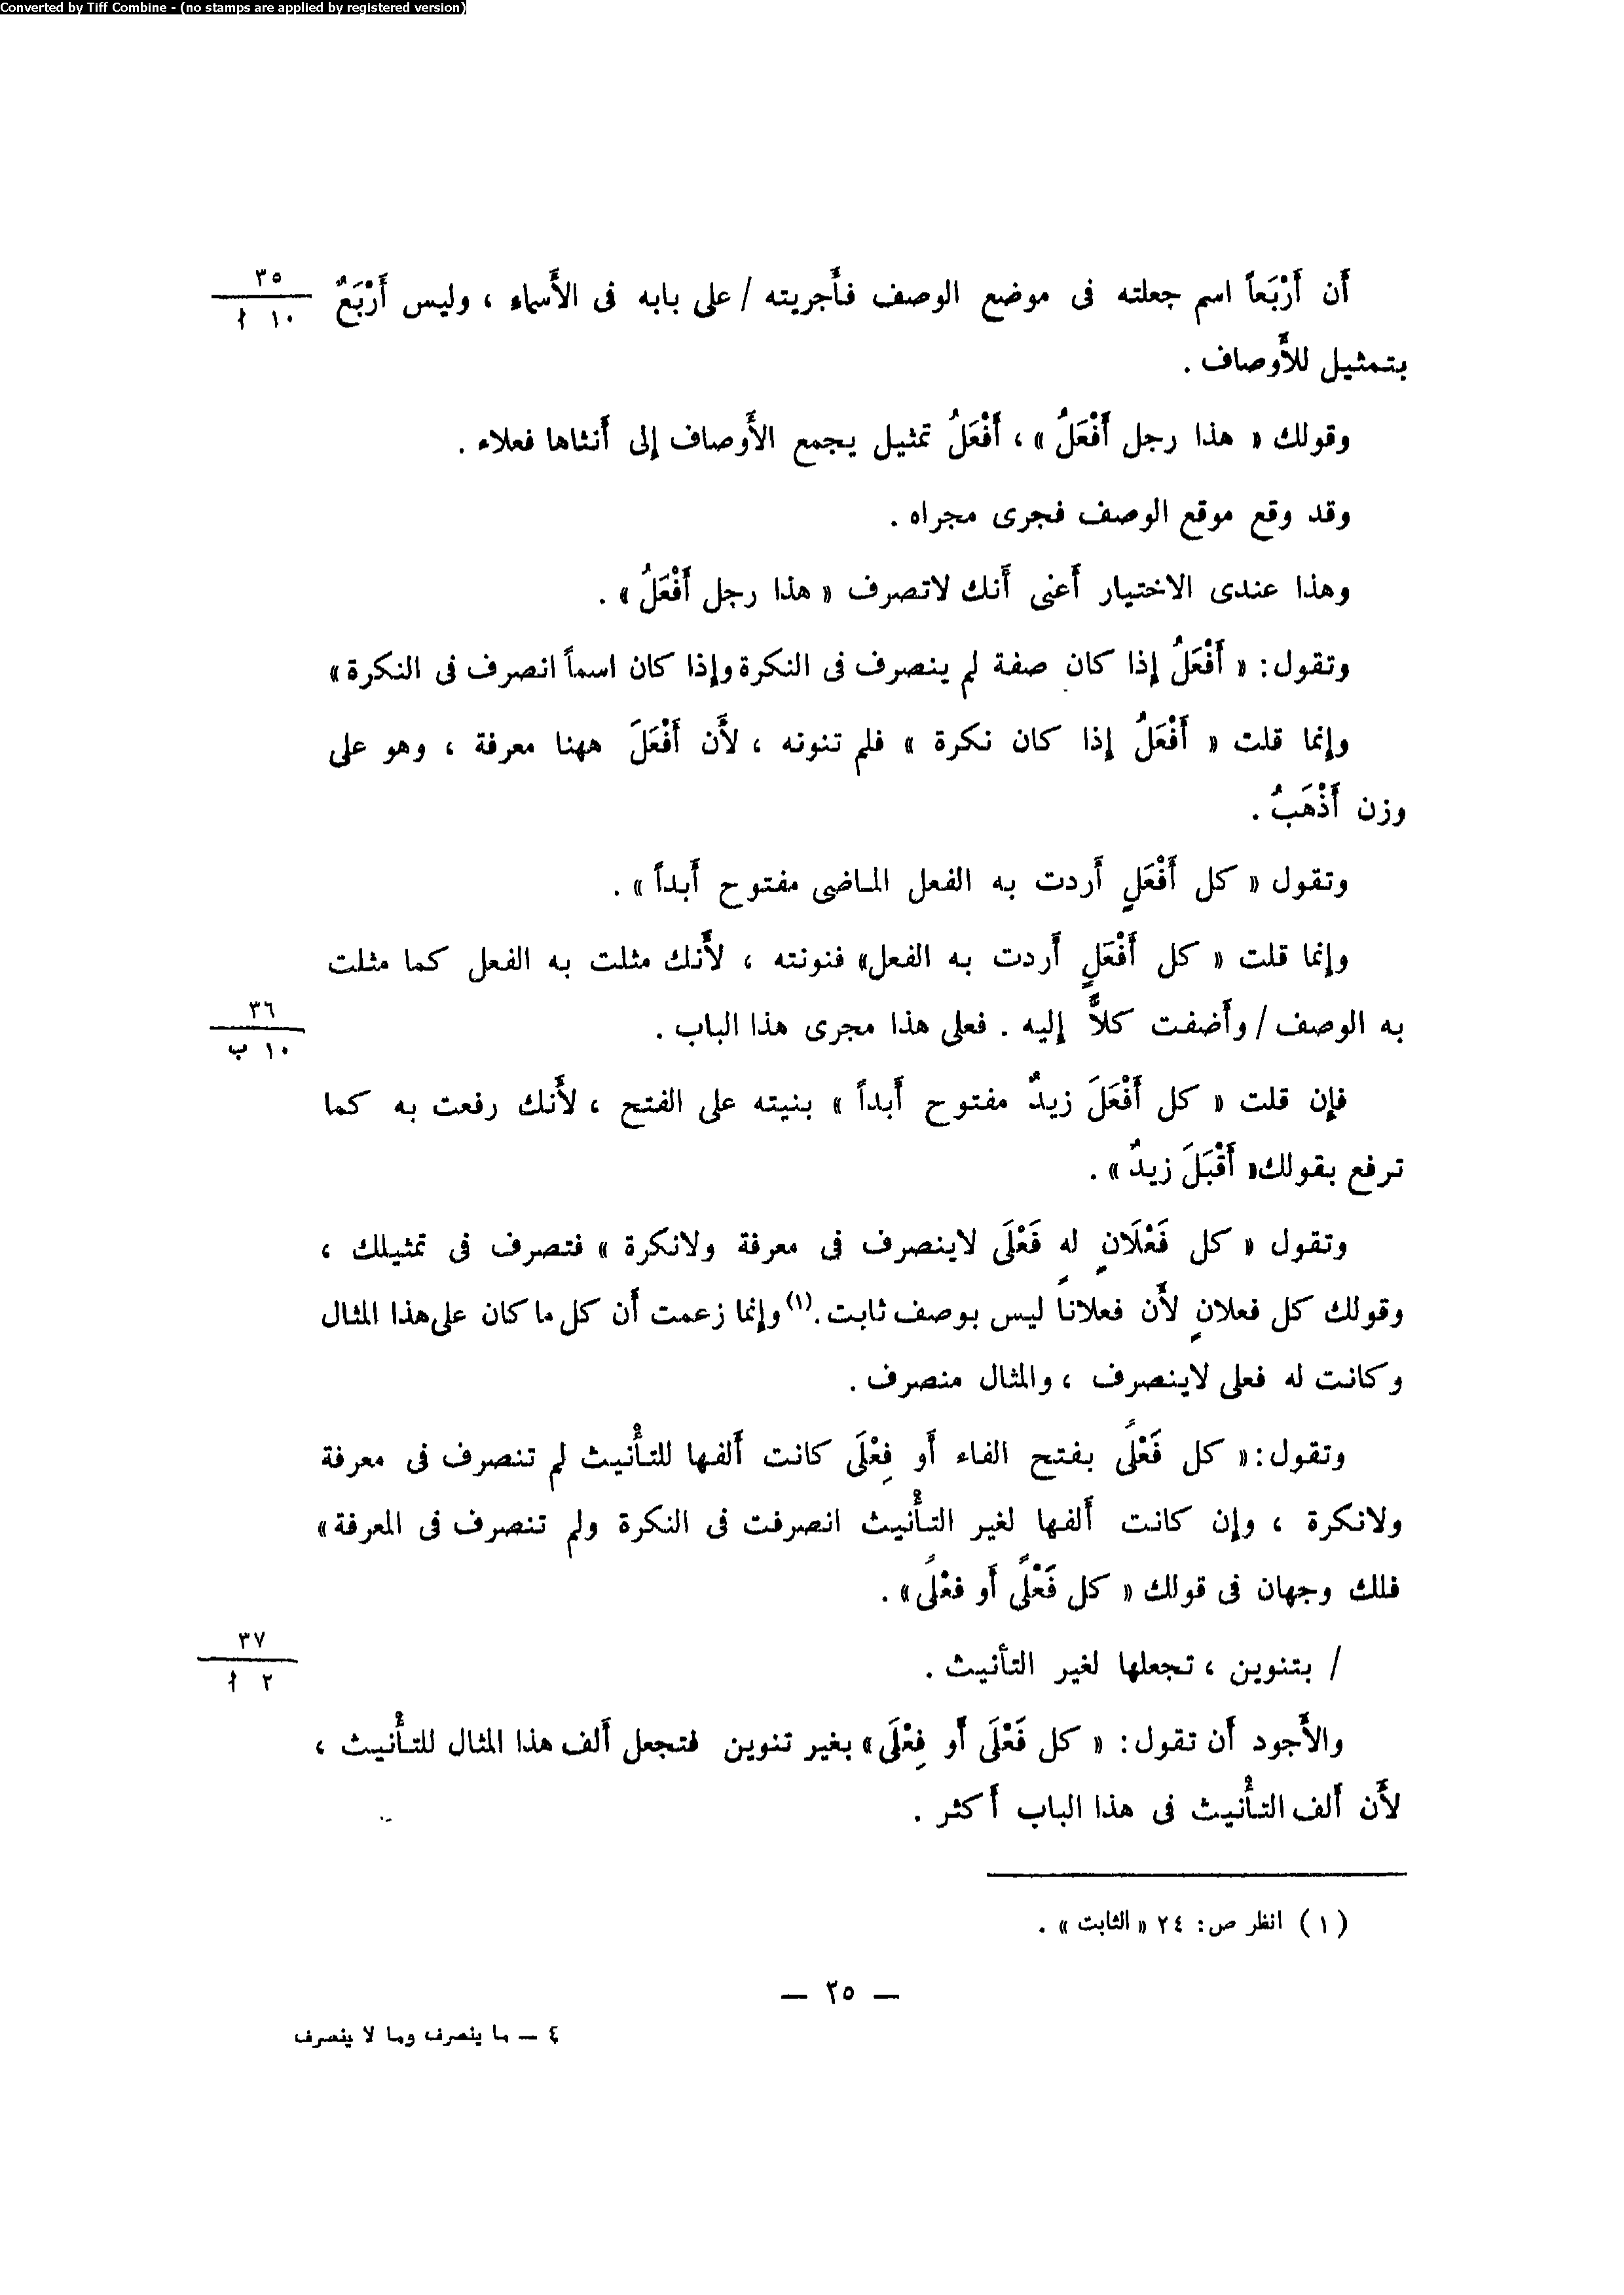 Converted by Tiff Combine - (no stamps are applied by registered version)
أَن أَرْبَعاً اسم جعلته فى موضع الوصف فأَجريته / على بابه فى الأَسماء ، وليس أَرْبَعٌ
٣٥
١٠ أ
بتمثيل للأَوصاف .
وقولك « هذا رجل أَفْعَلُ » ، أَفْعَلُ تمثيل يجمع الأَوصاف إلى أَنثاها فعلاء .
وقد وقع موقع الوصف فجرى مجراه .
وهذا عندى الاختيار أَعنى أَنك لاتصرف « هذا رجل أَفْعَلُ » .
وتقول : « أَفْعَلُ إذا كان صفة لم ينصرف فى النكرة وإذا كان اسماً انصرف فى النكرة »
وإنما قلت « أَفْعَلُ إذا كان نكرة » فلم تنونه ، لأَن أَفْعَلَ ههنا معرفة ، وهو على
وزن أَذْهَبُ .
وتقول « كل أَفْعَلٍ أَردت به الفعل الماضى مفتوح أَبداً » .
وإنما قلت « كل أَفْعَلٍ أَردت به الفعل» فنونته ، لأَنك مثلت به الفعل كما مثلت
به الوصف / وأَضفت كلاًّ إليه . فعلى هذا مجرى هذا الباب .
٣٦
١٠ ب
فإن قلت « كل أَفْعَلَ زيدٌ مفتوح أَبداً » بنيته على الفتح ، لأَنك رفعت به كما
ترفع بقولك« أَقْبَلَ زيدٌ » .
وتقول « كل فَعْلَانٍ له فَعْلَى لاينصرف فى معرفة ولانكرة » فتصرف فى تمثيلك ،
وقولك كل فعلانٍ لأَن فعلاناً ليس بوصف ثابت .(١) وإنما زعمت أَن كل ما كان على هذا المثال
وكانت له فعلى لاينصرف ، والمثال منصرف .
وتقول : « كل فَعْلًى بفتح الفاء أَو فِعْلَى كانت أَلفها للتأْنيث لم تنصرف فى معرفة
ولانكرة ، وإن كانت أَلفها لغير التأْنيث انصرفت فى النكرة ولم تنصرف فى المعرفة »
فلك وجهان فى قولك « كل فَعْلًى أَو فعْلًى » .
/ بتنوين ، تجعلها لغير التأنيث .
٣٧
٢ أ
والأَجود أَن تقول : « كل فَعْلَى أَو فِعْلَى » بغير تنوين فتجعل أَلف هذا المثال للتأْنيث ،
لأَن أَلف التأْنيث فى هذا الباب أَكثر .
(١) انظر ص : ٢٤ « الثابت » .
— ٢٥ —
٤ — ما ينصرف وما لا ينصرف